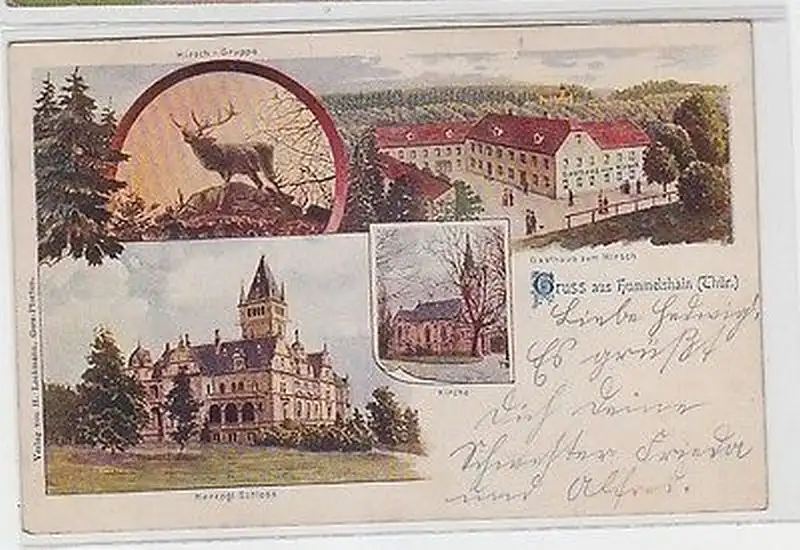 Hirsch-Gruppe
Gasthaus zum Hirsch
Gruss aus Hummelshain (Thür.)
Liebe Hedwig!
Es grüßt
Dich Deine
Schwester Frieda
und Alfred.
Kirche
Herzogl. Schloss
Verlag von H. Lockmann, Gera-Pforten.